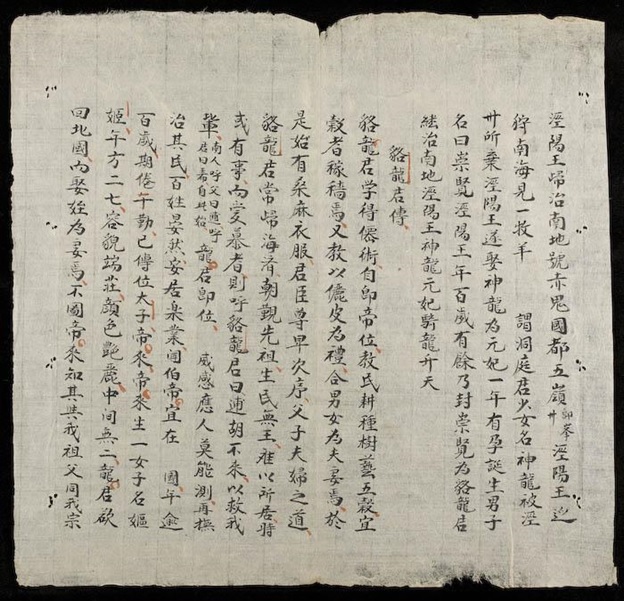 涇陽王歸治南地號赤鬼國都五嶺即峯卄涇陽王廵
狩南海見一牧羊 謂洞庭君少女名神龍被涇
卅所棄涇陽王遂娶神龍為元妃一年有孕誕生男子
名曰崇賢涇陽王年百歲有餘乃封崇賢為貉龍君
継治南地涇陽王神龍元妃騎龍升天
貉龍君傳
貉龍君学得僊術自即帝位教民耕種樹藝五穀宜
穀者稼穡焉又教以儷皮為禮合男女為夫妻焉於
是始有桑麻衣服君臣尊卑次序父子夫婦之道
貉龍君常歸海濟朝觀先祖生民無王in以所居時
或有事而愛慕者則呼貉龍君曰逋胡不來以救我
軰南人呼父曰逋呼君曰希自此始龍君即位 威感應人莫能測再撫
治其民百姓晏然安居楽業聞伯帝宜在 國年逾
百歲期倦午勤已傳位太子帝來帝來生一女子名嫗
姬年方二七容貌端莊顔色艷麗中间無二龍君欲
囬北國而娶姪為妻焉不國帝來知其與我祖父同我宗